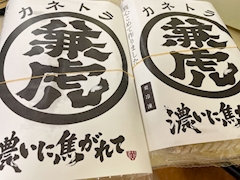 カネトラ
兼虎
濃いに焦がれて
カネトラ
兼虎
濃いに焦